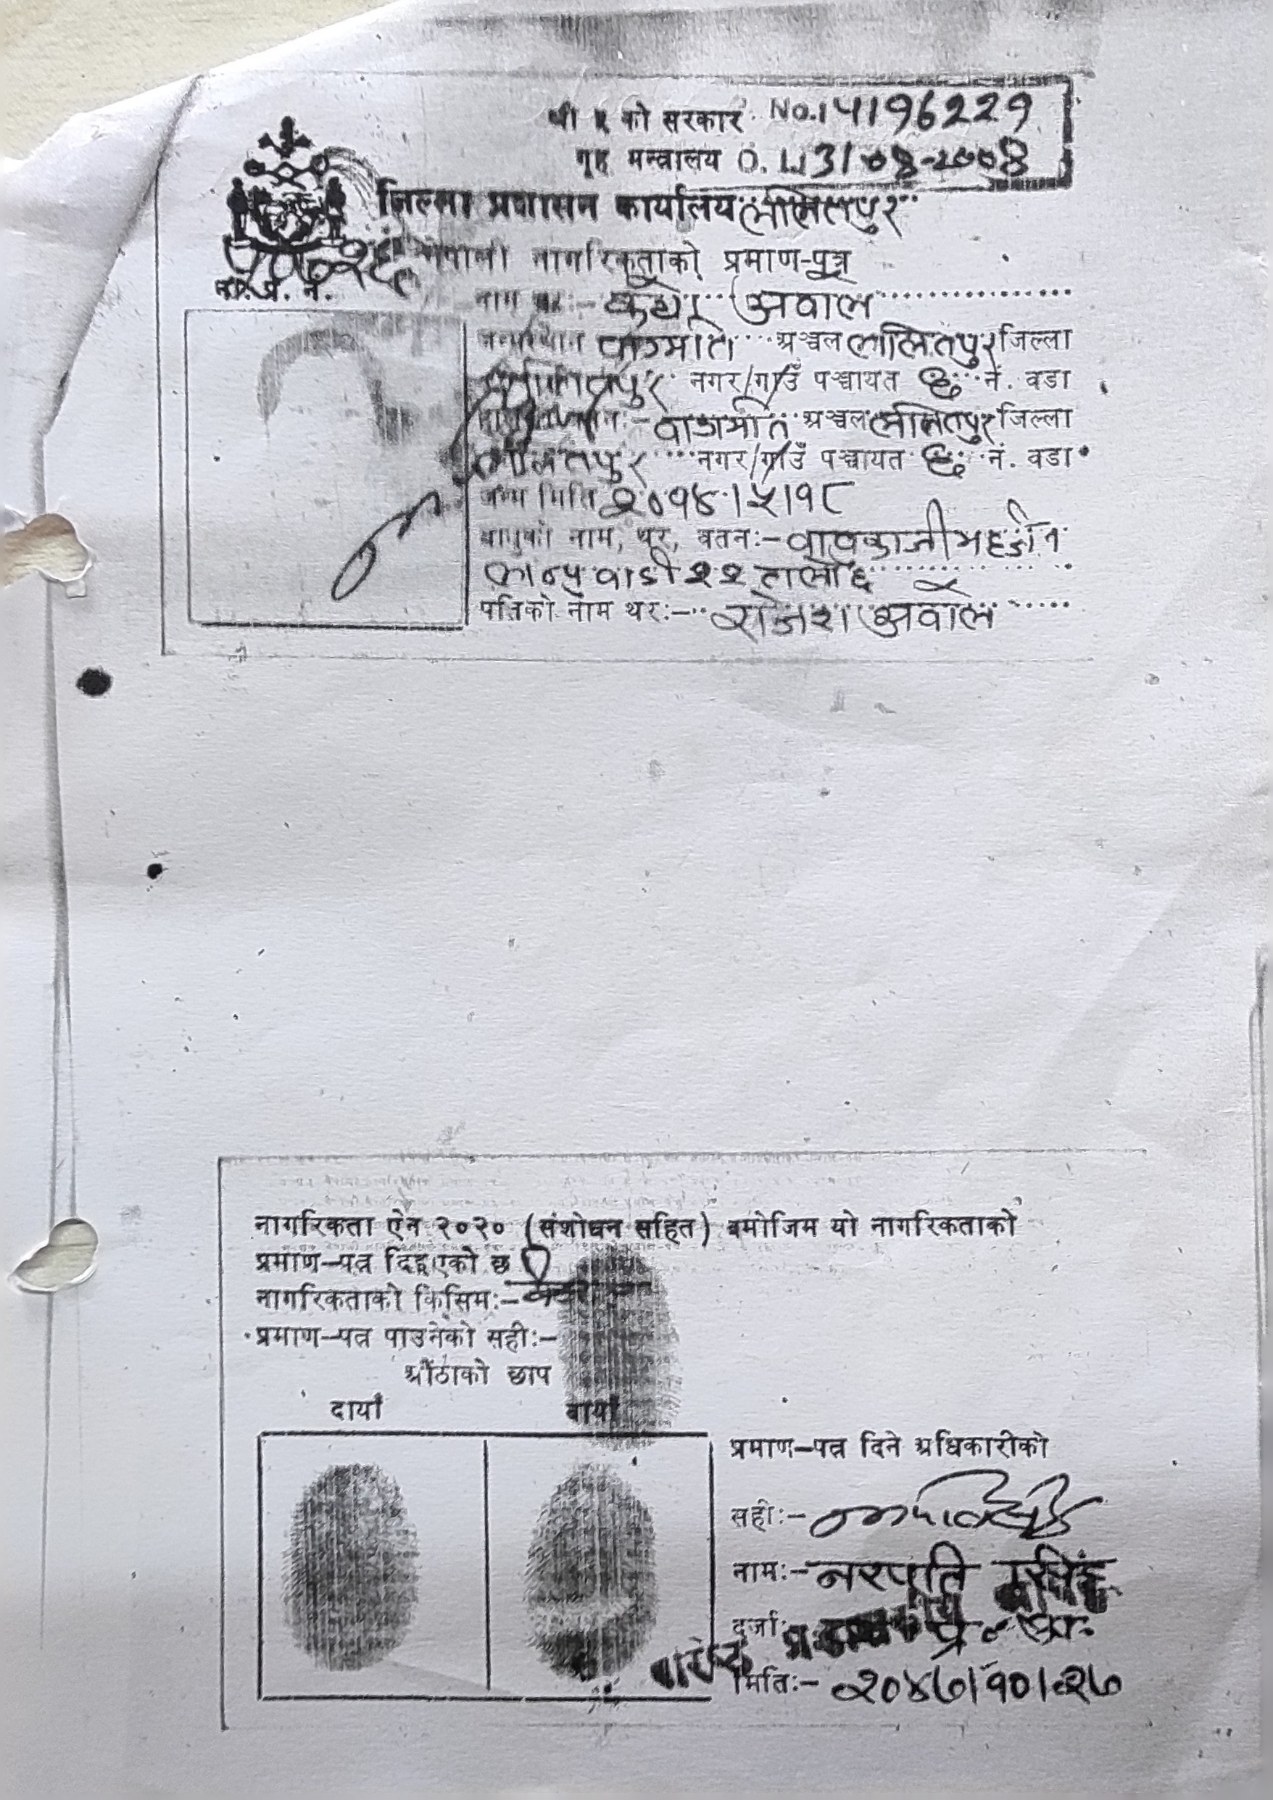 श्री ५ को सरकार No. 14196229
गृह मन्त्रालय D. 31-08-2008
जिल्ला प्रशासन कार्यालय ललितपुर
नेपाली नागरिकताको प्रमाण-पत्र
ना. प्र. नं.
नाम थरः- अवाल
जन्मस्थान वागमति अञ्चल ललितपुर जिल्ला
ललितपुर नगर/गाउँ पञ्चायत ६ नं. वडा
वागमति अञ्चल ललितपुर जिल्ला
ललितपुर नगर/गाउँ पञ्चायत ६ नं. वडा
जन्म मिति २०१४।५।१८
बाबुको नाम, थर, वतनः- महर्जन
२२
पतिको नाम थरः- राजेश अवाल
नागरिकता ऐन २०२० (संशोधन सहित) बमोजिम यो नागरिकताको
प्रमाण-पत्र दिइएको छ
नागरिकताको किसिमः-
प्रमाण-पत्र पाउनेको सहीः-
औंठाको छाप
दायाँ बायाँ
प्रमाण-पत्र दिने अधिकारीको
सहीः-
नामः- नरपति
दर्जाः
मितिः- २०४७।१०।२७